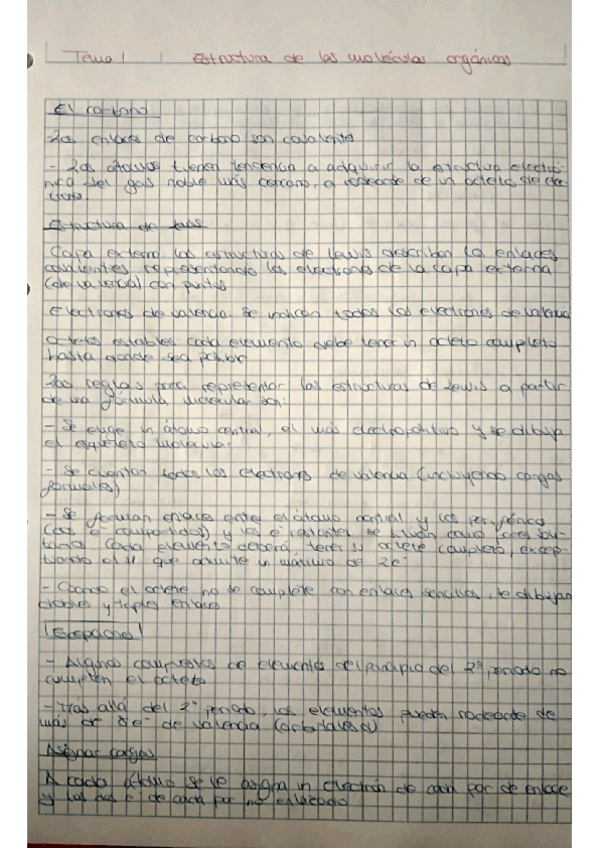 Tema 1 Estructura de las moléculas orgánicas
El carbono
Los enlaces de carbono son covalente
- Los átomos tienen tendencia a adquirir la estructura electró
nica del gas noble más cercano, o rodearse de un octeto de elec
Estructura de
Capa externa las estructuras de Lewis describen los enlaces
covalentes representando los electrones de la capa externa
(de valencia) con puntos
Electrones de valencia. Se indican todos los electrones de valencia
octetos estables cada elemento debe tener un octeto completo
hasta donde sea posible
Las reglas para representar las estructuras de Lewis a partir
de una fórmula molecular son:
- Se elige un átomo central, el más electropositivo y se dibuja
el esqueleto molecular
- Se cuentan todos los electrones de valencia (incluyendo cargas
formales)
- Se forman enlaces entre el átomo central y los periféricos
y los e⁻ restantes se sitúan como pares
Cada elemento deberá tener su octete completo, excep-
tuando el H que admite un máximo de 2e⁻
- Cuando el octete no se complete con enlaces sencillos, se dibujan
dobles y triples enlaces
Excepciones
- Algunos compuestos de elementos del principio del 2º periodo no
cumplen el octeto
- Tras allá del 2º periodo, los elementos pueden rodearse de
más de 8e⁻ de valencia
Asignar cargas
A cada átomo se le asigna un electrón de cada par de enlace
y los dos e⁻ de cada par no enlazado